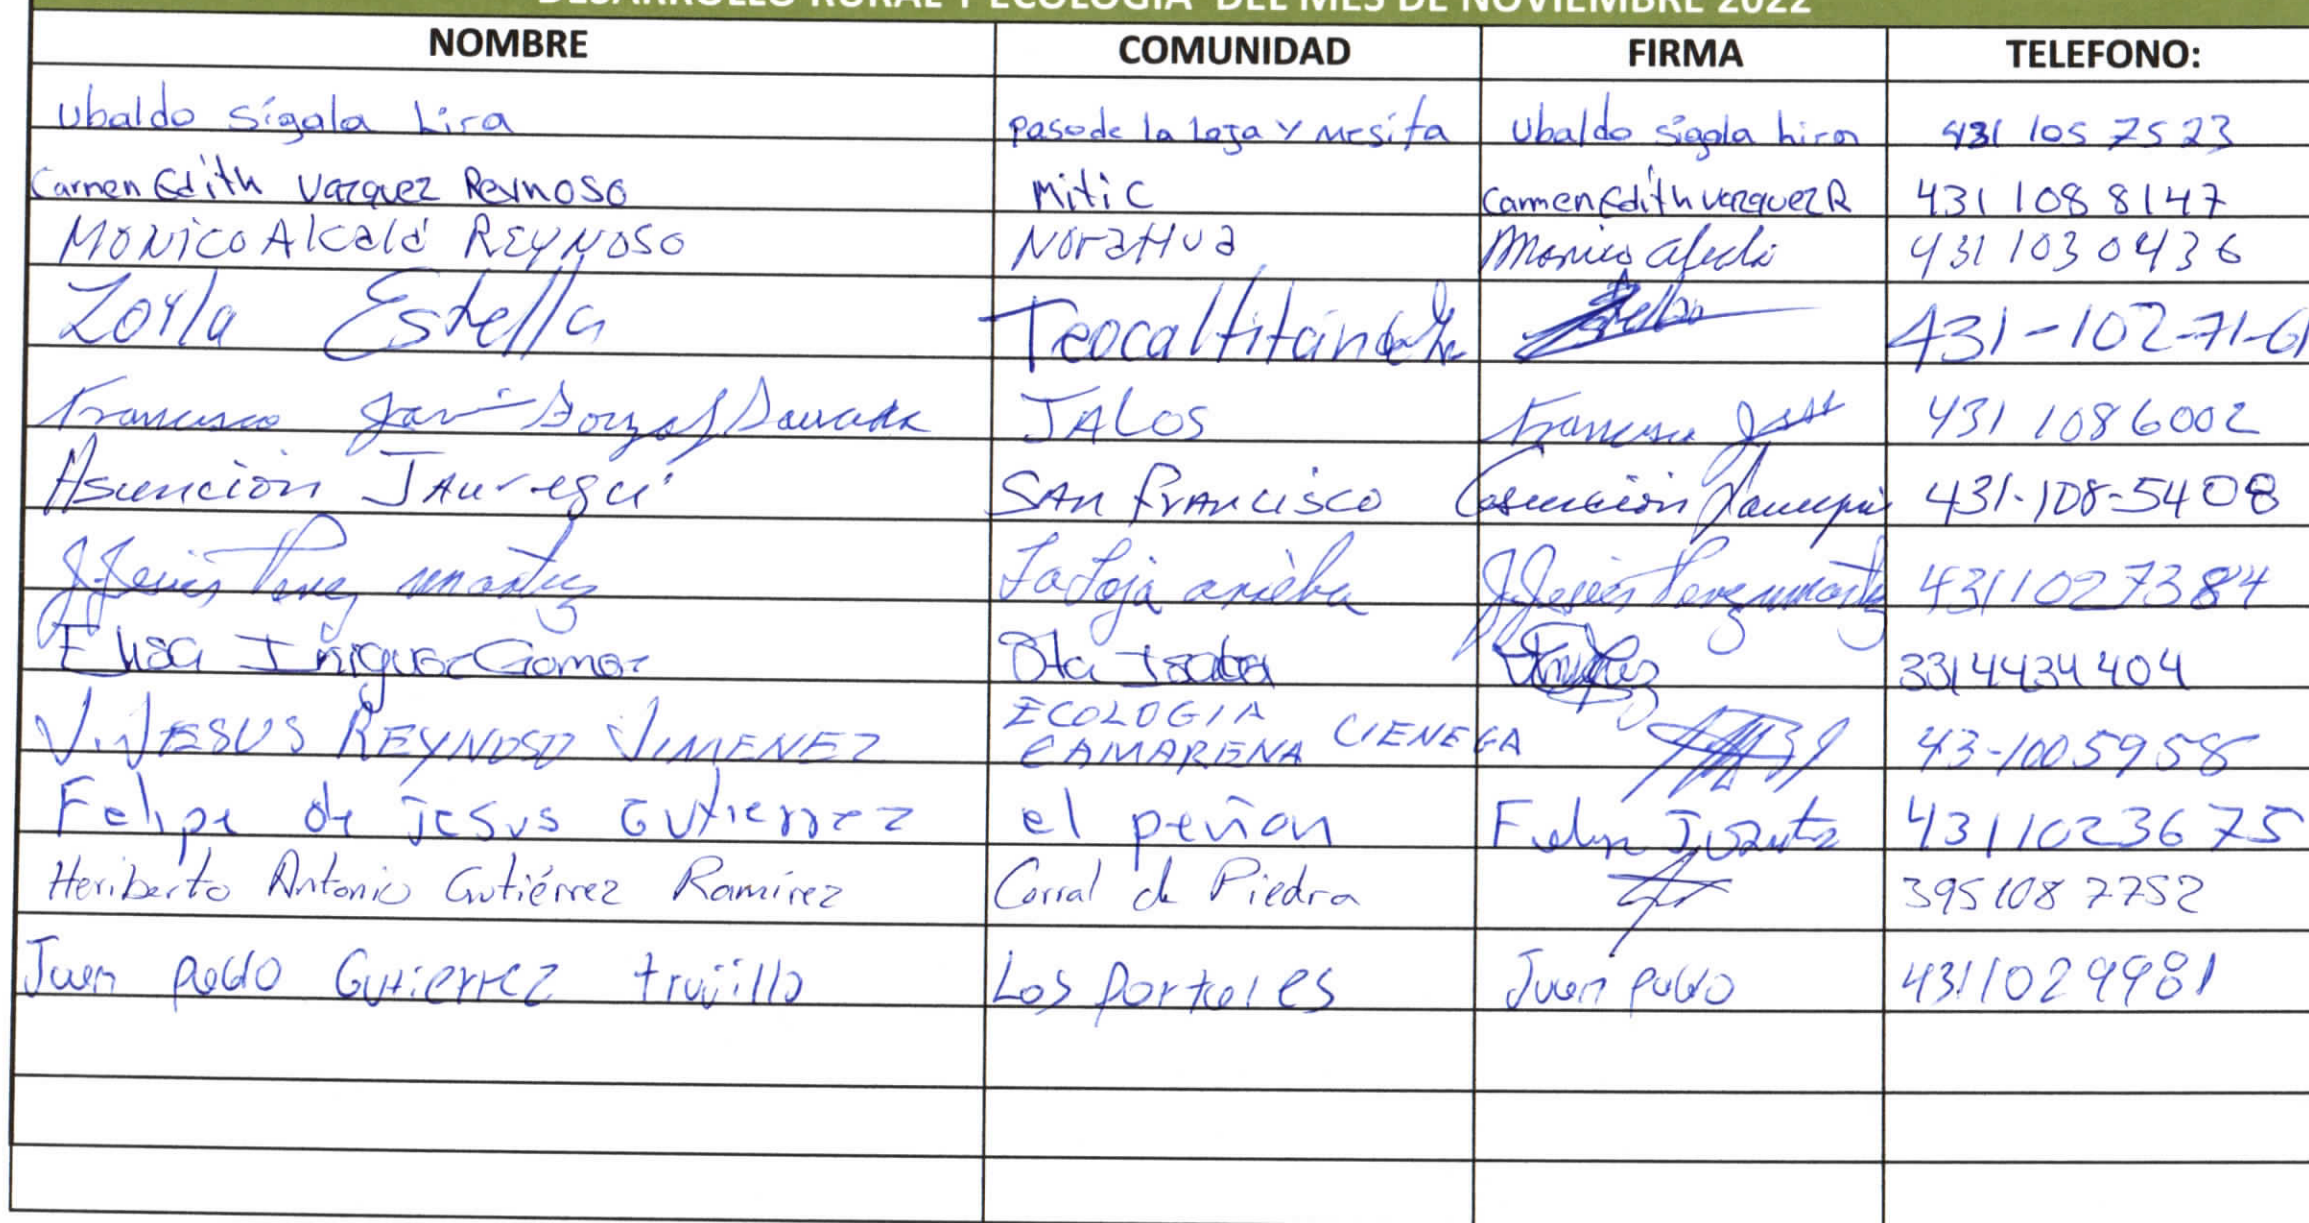 DESARROLLO RURAL Y ECOLOGIA DEL MES DE NOVIEMBRE 2022
NOMBRE COMUNIDAD FIRMA TELEFONO:
Ubaldo Sígala Lira paso de la laja y mesita Ubaldo Sigala Lira 431 105 7523
Carmen Edith Vazquez Reynoso Mitic Carmen Edith Vazquez R 431 108 8147
MONICO Alcalá REYNOSO Norathua Monico Alcala 431 103 0436
Zoyla Estella Teocaltitán de 431-102-71-6
Francisco Javi JALOS Francisco 431 1086002
Asuncion JAuregui SAn FRAncisco Asuncion Jauregui 431-108-5408
J Jesús Perez La Laja arriba J Jesús Perez 4311027384
Elisa Iñiguez Gomez Sta Isabel 3314434404
J. JESUS REYNOSO JIMENEZ ECOLOGIA CIENEGA CAMARENA 43-1005958
Felipe de jesus Gutierrez el peñon Felip 4311023675
Heriberto Antonio Gutiérrez Ramírez Corral de Piedra 395 108 7752
Juan pablo Gutierrez trujillo Los portales Juan pablo 4311029981